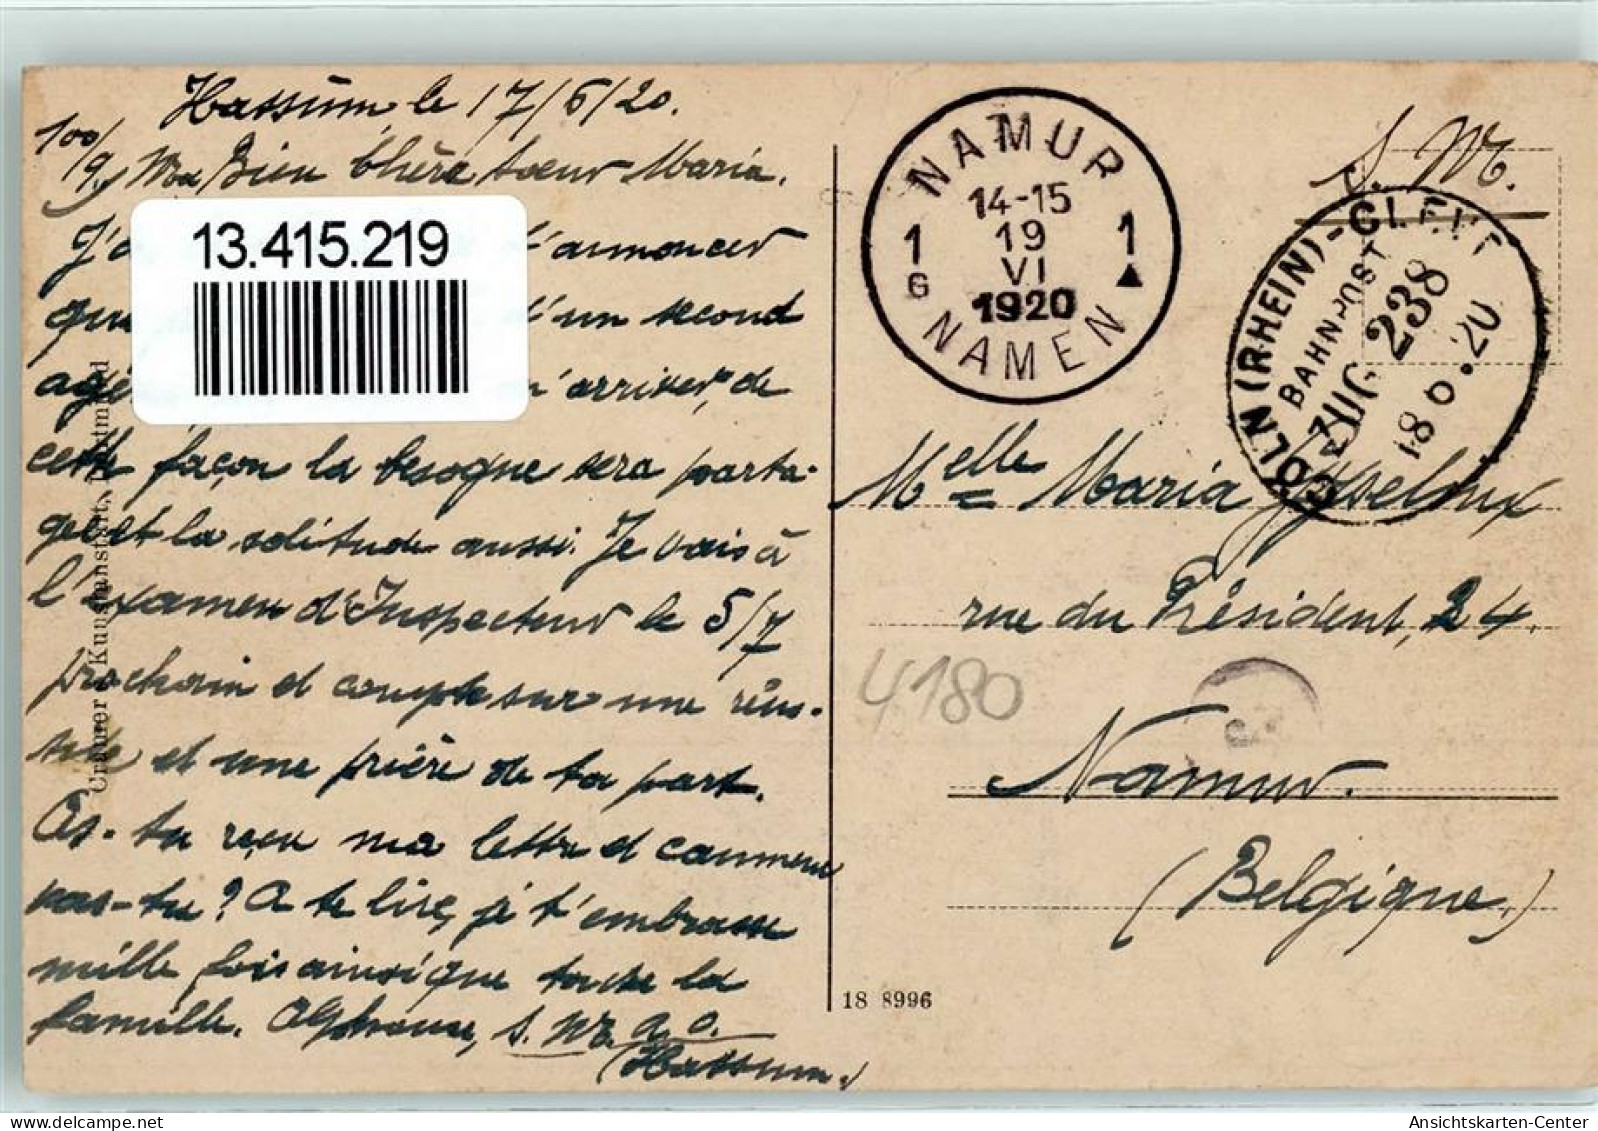 Hassum, le 17/6/20.
100/9.
Ma Bien Chère soeur Maria.
J'a t'annoncer
que d'un second
age n'arriver, de
cette façon la besogne sera parta-
gée et la solitude aussi. Je vais à
l'examen d'Inspecteur le 5/7
prochain et compte sur une réus-
site et une prière de ta part.
As-tu reçu ma lettre et comment
vas-tu? A te lire, je t'embrasse
mille fois ainsi que toute la
famille. Alphonse, S. M. a. o.
(Hassum.)
13.415.219
Kunstanstalt, Dortmund
NAMUR
14-15
1 19 1
VI
G 1920
NAMEN
S. M.
CÖLN (RHEIN)-CLEVE
BAHNPOST
ZUG 238
18 6. 20
Melle Maria
rue du Président, 24.
4180
Namur.
(Belgique)
18 8996
Ansichtskarten-Center